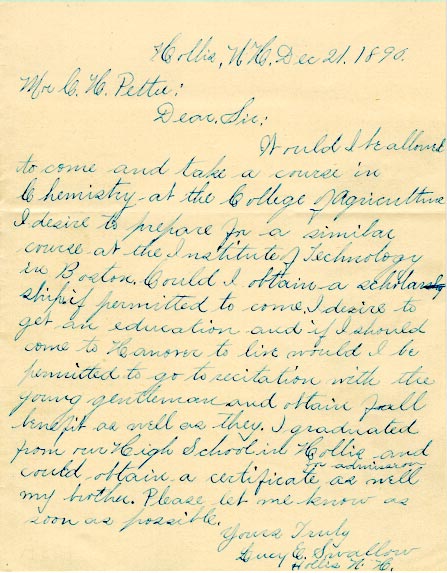 Hollis, N.H. Dec 21. 1890.
Mr C. H. Pettee:
Dear. Sir:
Would I be allowed
to come and take a course in
Chemistry at the College of Agriculture
I desire to prepare for a similar
course at the Institute of Technology
in Boston. Could I obtain a scholar
ship if permitted to come. I desire to
get an education and if I should
come to Hanover to live would I be
permitted to go to recitation with the
young gentleman and obtain full
benefit as well as they. I graduated
from our High School in Hollis and
for admission
could obtain a certificate as well
my brother. Please let me know as
soon as possible.
Yours Truly
Lucy E. Swallow
Hollis N. H.